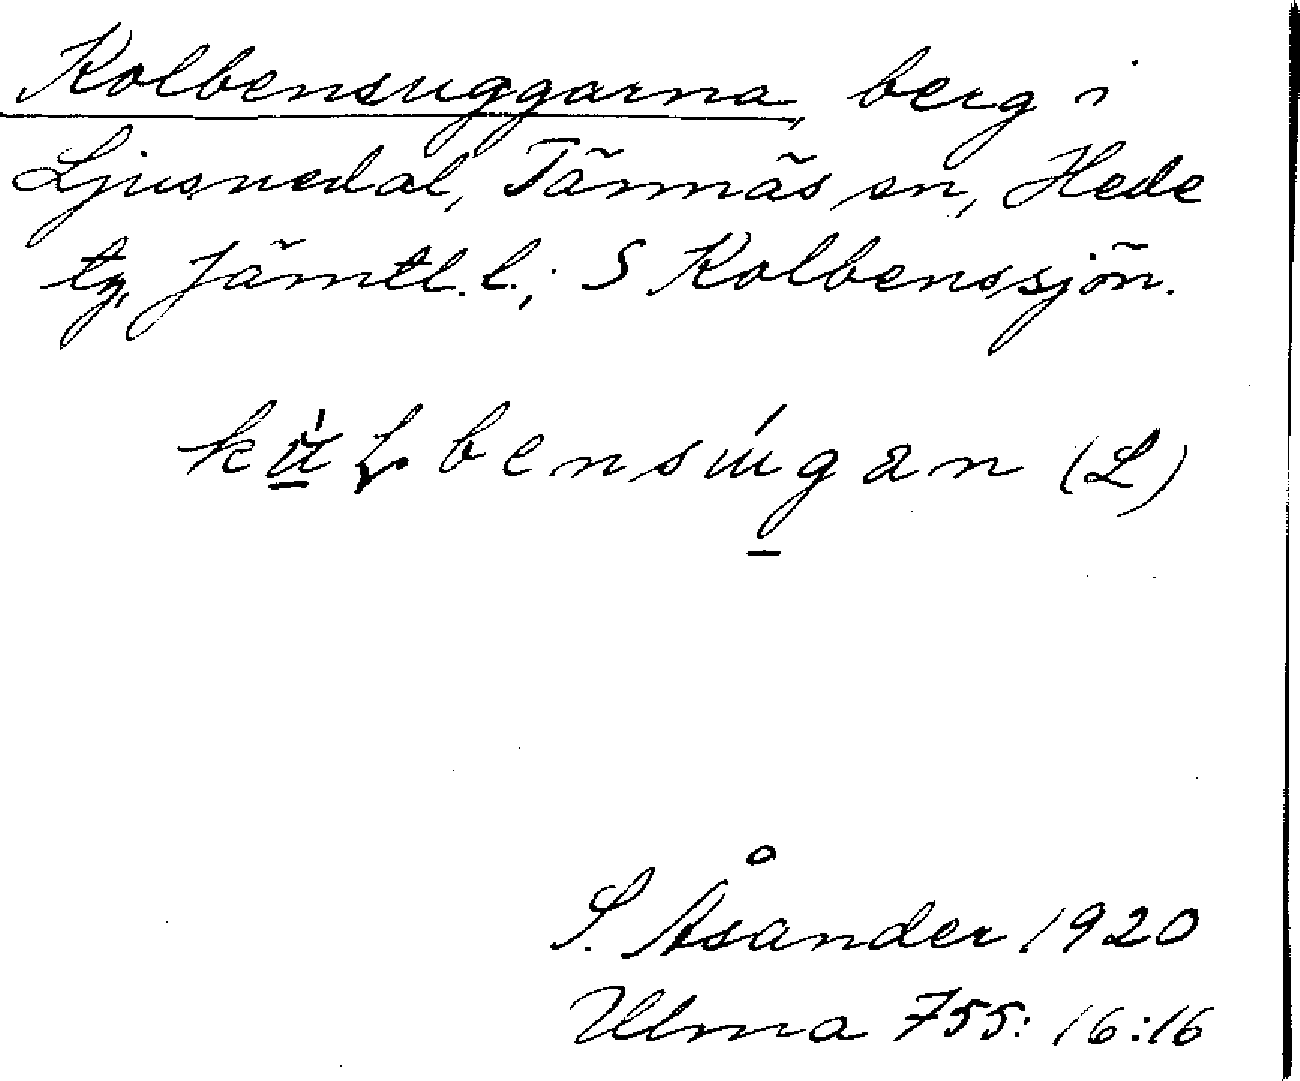 Kolbensuggarna, berg i
Ljusnedal, Tännäs sn, Hede
tg, Jämtl. l.; S Kolbenssjön.
kùɫbensúgan (L)
S. Åsander 1920
Ulma 755: 16:16